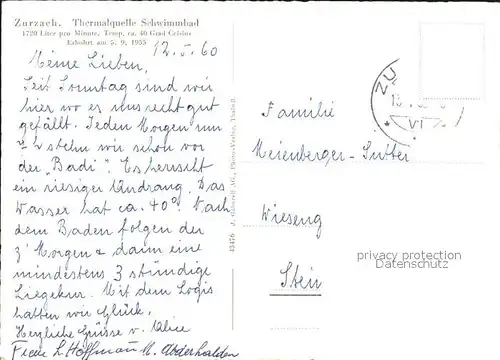 Zurzach. Thermalquelle Schwimmbad
1720 Liter pro Minute, Temp. ca. 40 Grad Celsius
Erbohrt am 5. 9. 1955
12. 5. 60
Meine Lieben,
Seit Sonntag sind wir
hier wo es uns recht gut
gefällt. Jeden Morgen um
stehn wir schon vor
der "Badi". Es herrscht
ein riesiger Andrang. Das
Wasser hat ca. 40°. Nach
dem Baden folgen der
z' Morgen & dann eine
mindestens 3 stündige
Liegekur. Mit dem Logis
hatten wir Glück.
Herzliche Grüsse v. Alice
Frau L. Hoffmann M. Abderhalden
Familie
Meienberger-Sutter
Wieseng
Stein
privacy protection
Datenschutz
43476
ZÜ
VI